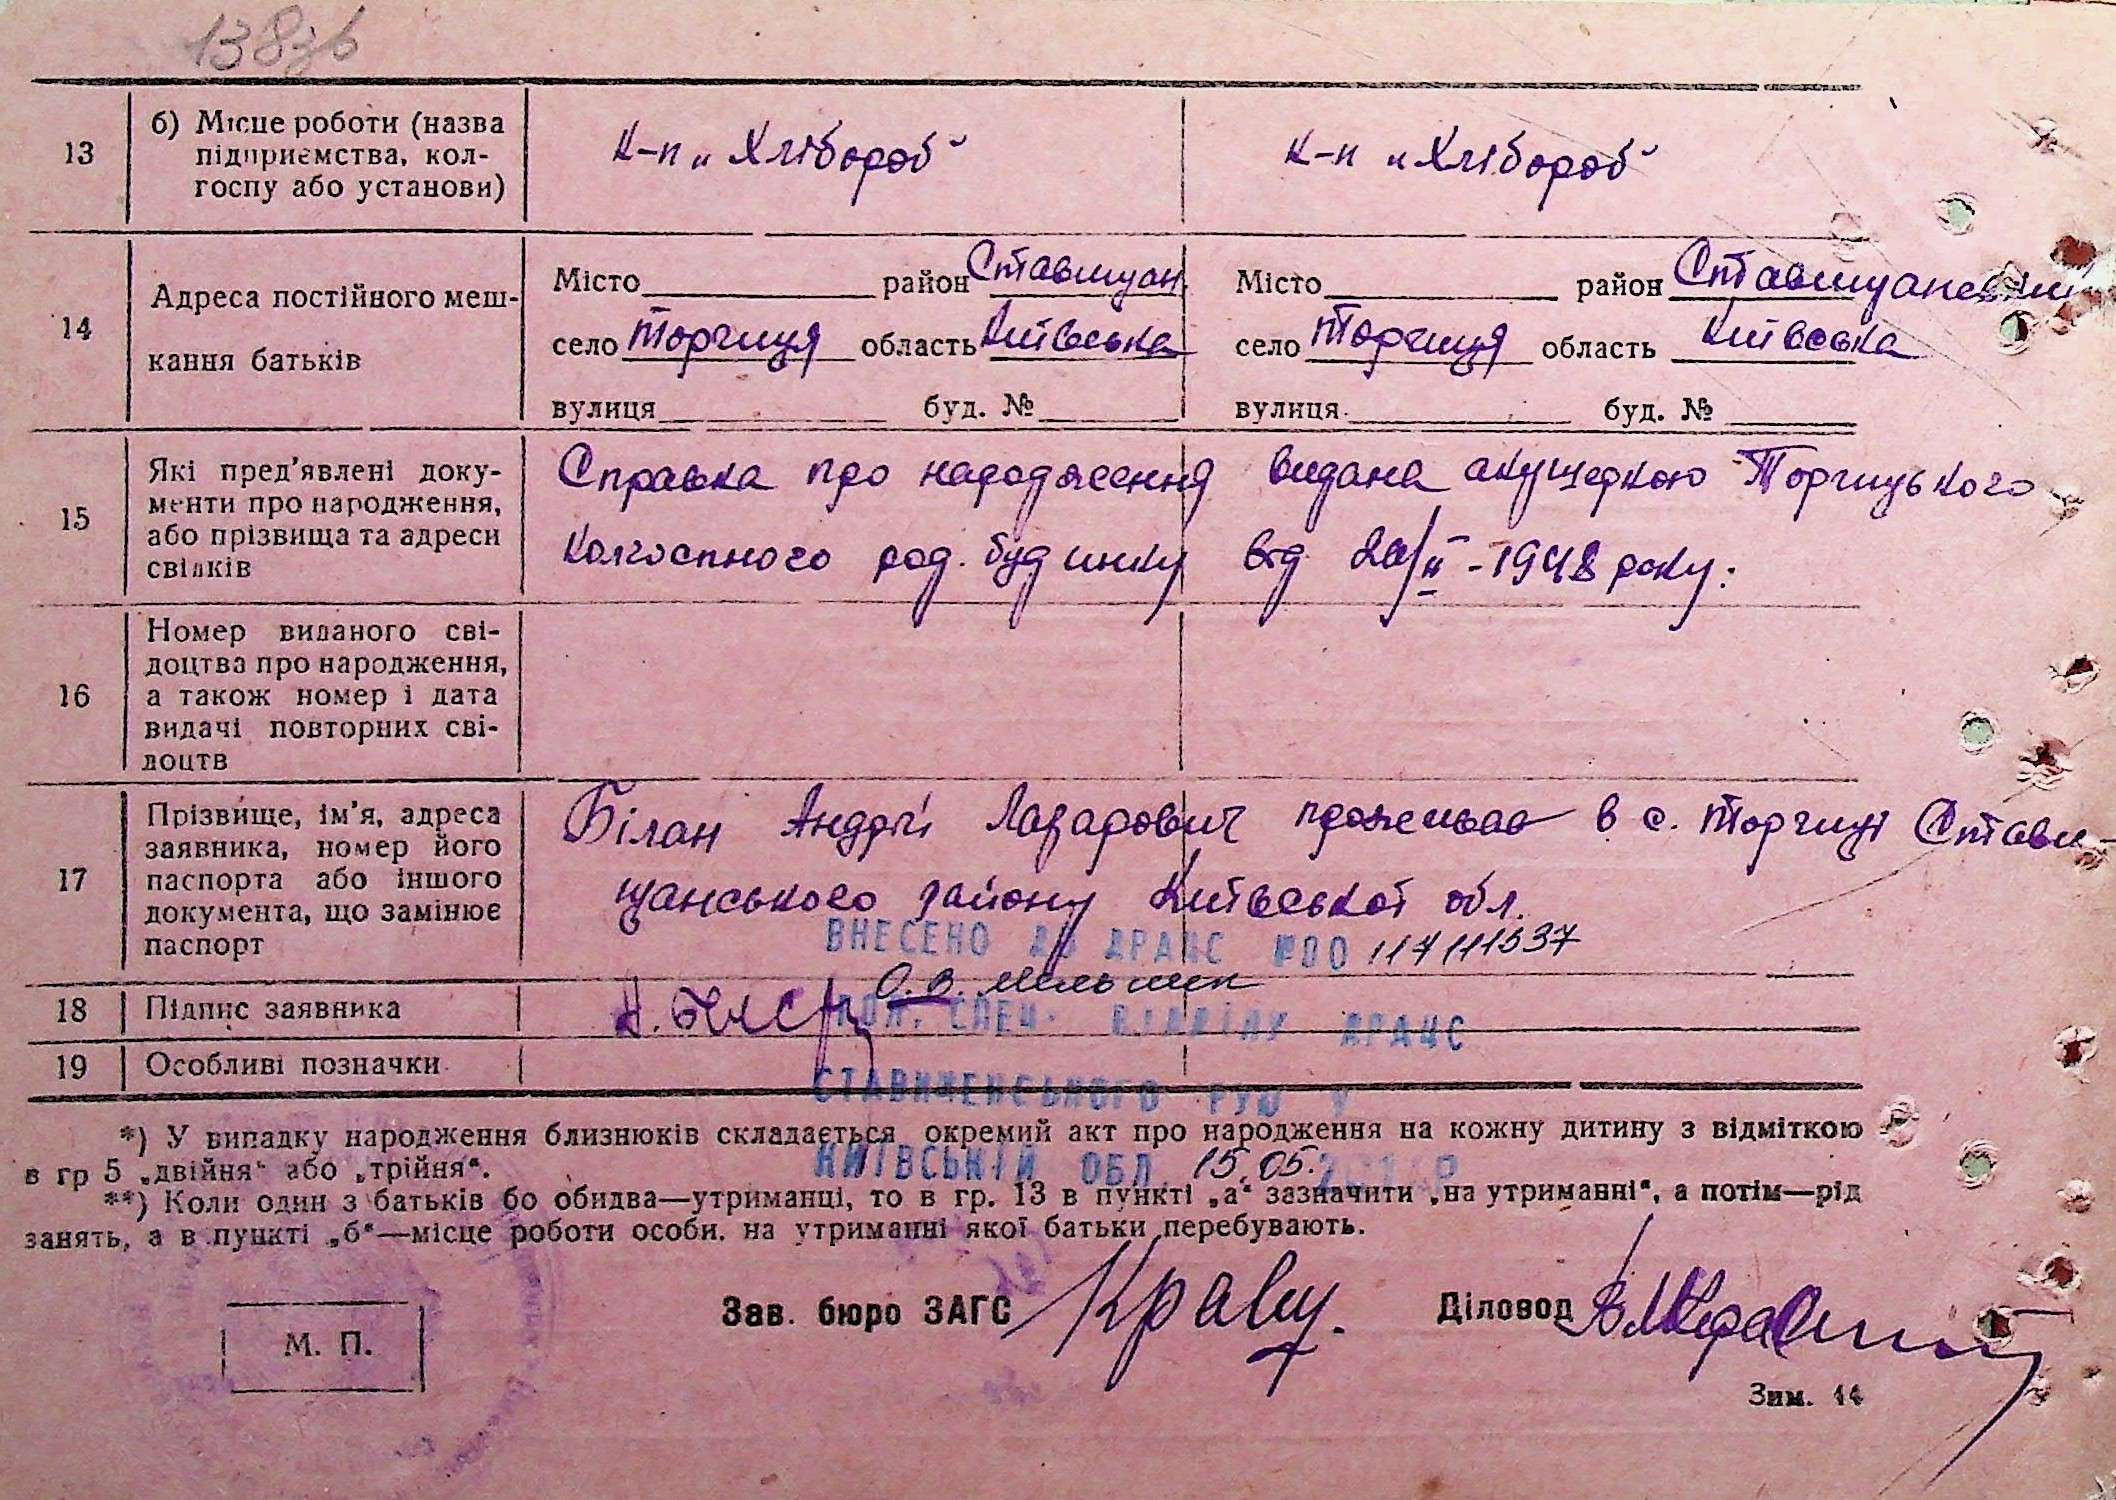 138зв
13 б) Місце роботи (назва підприємства, колгоспу або установи) К-п „Хлібороб" К-п „Хлібороб"
14 Адреса постійного мешкання батьків
Місто район Ставищан. Місто район Ставищанський
село Торчиця область Київська село Торчиця область Київська
вулиця буд. № вулиця буд. №
15 Які пред'явлені документи про народження, або прізвища та адреси свідків
Справка про народження видана акушеркою Торчицького
колгоспного род. будинку від 20/II - 1948 року.
16 Номер виданого свідоцтва про народження, а також номер і дата видачі повторних свідоцтв
17 Прізвище, ім'я, адреса заявника, номер його паспорта або іншого документа, що замінює паспорт
Білан Андрій Лазарович проживає в с. Торчиці Стави-
щанського району Київської обл.
ВНЕСЕНО ДО ДРАЦС №00 117111537
О.В. Мельник
18 Підпис заявника
СПЕЦ. ВІДДІЛУ ДРАЦС
19 Особливі позначки
СТАВИЩЕНСЬКОГО РУЮ У
*) У випадку народження близнюків складається окремий акт про народження на кожну дитину з відміткою
в гр 5 „двійня" або „трійня".
КИЇВСЬКІЙ ОБЛ. 15.05.
**) Коли один з батьків бо обидва—утриманці, то в гр. 13 в пункті „а" зазначити „на утриманні", а потім—рід
занять, а в пункті „б"—місце роботи особи. на утриманні якої батьки перебувають.
Зав. бюро ЗАГС Кравц. Діловод
М. П.
Зим. 14